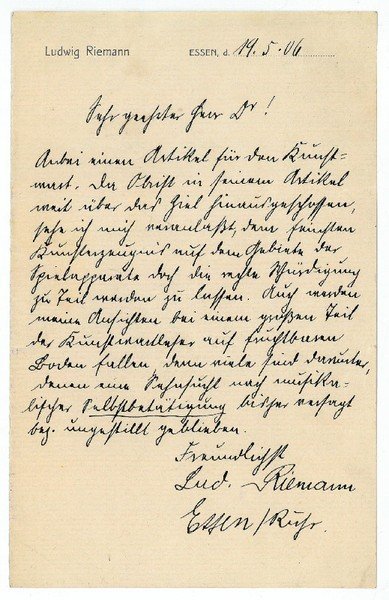 Ludwig Riemann
ESSEN, d. 19.5.06
Sehr geehrter Herr Dr!
Anbei einen Artikel für den Kunst=
wart. Da Obrist in seinem Artikel
weit über das Ziel hinausgeschossen,
sehe ich mich veranlaßt, dem feinsten
Kunsterzeugnis auf dem Gebiete der
Spielapparate doch die rechte Würdigung
zu Teil werden zu lassen. Auch werden
meine Ansichten bei einem großen Teil
der Kunstwartleser auf fruchtbaren
Boden fallen, denn viele sind darunter,
denen eine Sehnsucht nach musika-
lischer Selbstbetätigung bisher versagt
bez. ungestillt geblieben.
Freundlichst
Lud. Riemann
Essen/Ruhr.